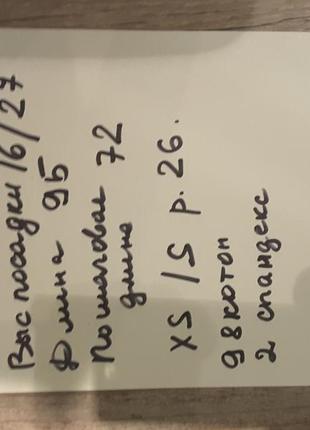 Выс посадки 16/27
Длина 95
По шаговая 72
длина
XS/S р. 26.
98 котон
2 спандекс